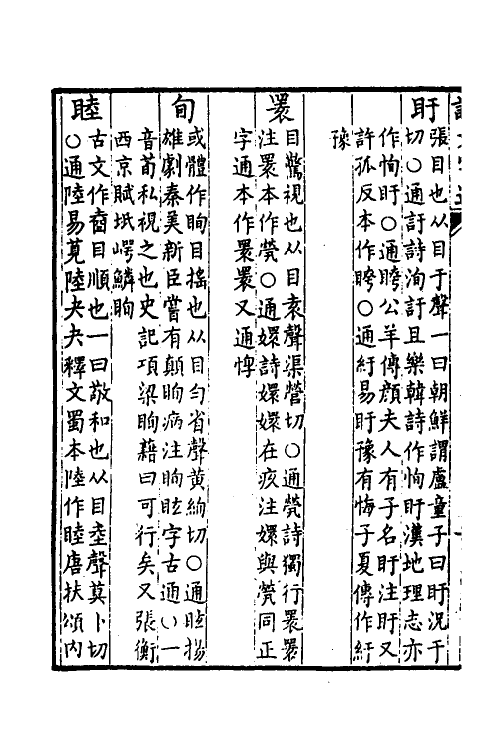 盱
張目也从目于聲一曰朝鮮謂盧童子曰盱況于
切○通訏詩洵訏且樂韓詩作恂盱漢地理志亦
作恂盱○通公羊傳顏夫人有子名盱注盱又
許孤反本作○通紆易盱豫有悔子夏傳作紆
豫
睘
目驚視也从目袁聲渠營切○通煢詩獨行睘睘
注睘本作煢○通嬛詩嬛嬛在疚注嬛與煢同正
字通本作瞏睘又通惸
旬
或體作眴目搖也从目勻省聲黄絢切○通眩揚
雄劇秦美新臣嘗有顛眴病注眴眩字古通○一
音荀私視之也史記項梁眴藉曰可行矣又張衡
西京賦坻崿鱗眴
睦
古文作目順也一曰敬和也从目坴聲莫卜切
○通陸易莧陸夬夬釋文蜀本陸作睦唐扶頌内